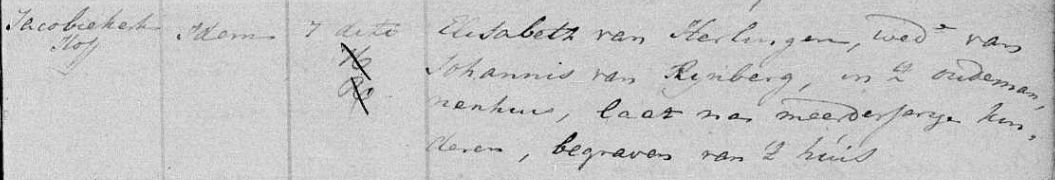 Jacobiekerk Idem 7 dito Elisabeth van Herlingen, wed.e van
Hof Johannis van Rijnberg, in 't oudeman,
nenhuis, laat na meerderjarige kin,
deren, begraven van 't huis